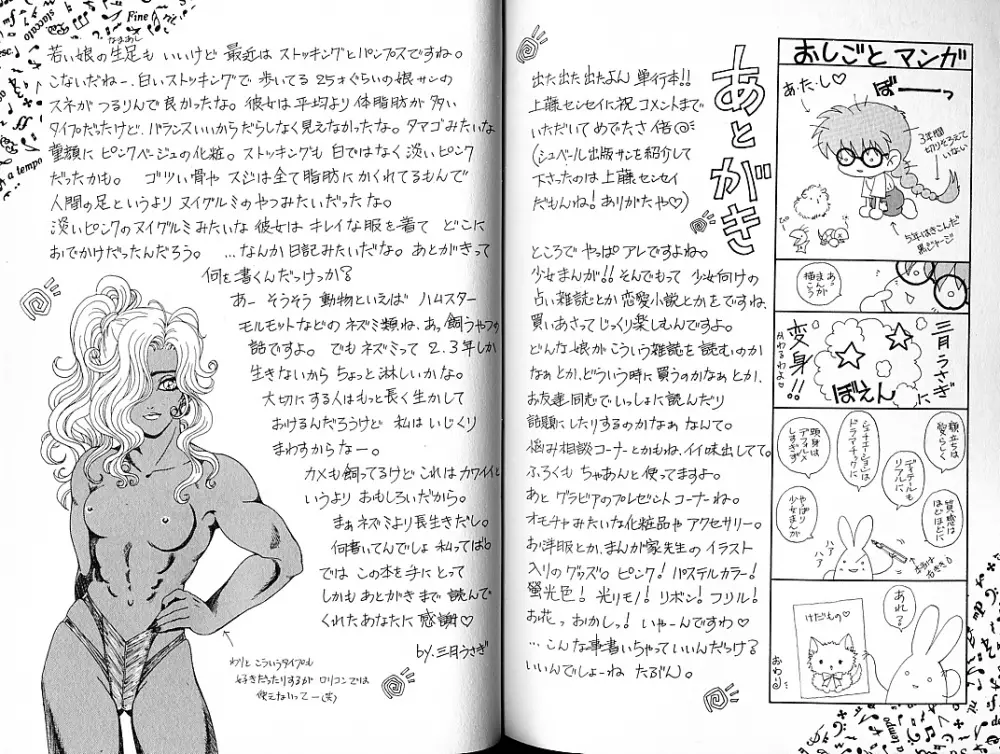 おしごとマンガ
あ・た・し♡
ぼーーっ
3年間
切りそろえて
いない
5年はきこんだ
黒ジャージ
あっ
まんが
描こう
三月うさぎ
変身!!
かわるわよ♡
ぼえん
に
顔立ちは
愛らしく
ディテールも
リアルに
シチュエーションは
ドラマチックに
頭身は
デフォルメ
しすぎず
質感は
ほどほどに
やっぱり
少女まんが
ハア
ハア
あれ?
けだもの♡
おわり
あとがき
出た出た出たよん 単行本!!
上藤センセイに祝コメントまで
いただいて めでたさ倍@
(シュベール出版サンを紹介して
下さったのは 上藤センセイ
だもんね! ありがたや♡)
ところで やっぱ アレですよね。
少女まんが!! そんでもって 少女向けの
占い雑誌とか 恋愛小説とかをですね、
買いあさって じっくり楽しむんですよ。
どんな娘が こういう雑誌を 読むのか
なぁ とか、どういう時に 買うのかなぁ とか、
お友達同志で いっしょに 読んだり
話題にしたりするのかなぁ なんて。
悩み相談コーナーとかもね、イイ味出してて。
ふろくも ちゃあんと 使ってますよ。
あと グラビアのプレゼント コーナーね。
オモチャみたいな化粧品や アクセサリー。
お洋服とか、まんが家先生の イラスト
入りのグッズ。ピンク! パステルカラー!
螢光色! 光りモノ! リボン! フリル!
お花っ おかしっ! いやーんですわ♡
…こんな事書いちゃって いいんだっける
いいんでしょーね たぶん。
若い娘の生足も いいけど 最近は ストッキングとパンプスですね。
なまあし
こないだねー、白いストッキングで 歩いてる 25才ぐらいの娘サンの
スネが つるりんで 良かったな。彼女は 平均より 体脂肪が 多い
タイプだったけど、バランスいいからだらしなく見えなかったな。タマゴみたいな
童顔に ピンクベージュの化粧。ストッキングも 白ではなく 淡いピンク
だったかも。 ゴツい骨や スジは全て脂肪にかくれてるもんで
人間の足というより ヌイグルミのやつみたいだったな。
淡いピンクの ヌイグルミみたいな 彼女は キレイな服を着て どこに
おでかけだったんだろう。 …なんか 日記みたいだな。あとがきって
何を書くんだっけっか?
あー そうそう 動物といえば ハムスター
モルモットなどの ネズミ類ね、あ、飼うやつの
話ですよ。 でも ネズミって 2.3年しか
生きないから ちょっと 淋しいかな。
大切にする人は もっと長く 生かして
おけるんだろうけど 私は いじくり
まわすからなー。
カメも 飼ってるけど これは カワイイと
いうより おもしろいだから。
まぁ ネズミより 長生きだし。
何書いてんでしょ 私ってば。
では この本を手にとって
しかも あとがきまで 読んで
くれた あなたに 感謝♡
by.三月うさぎ
わりと こういうタイプも
好きだったりするが ロリコンでは
使えないってー(笑)
Fine
staccato
a tempo